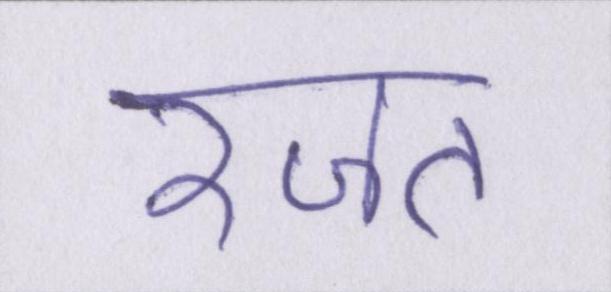 रजत